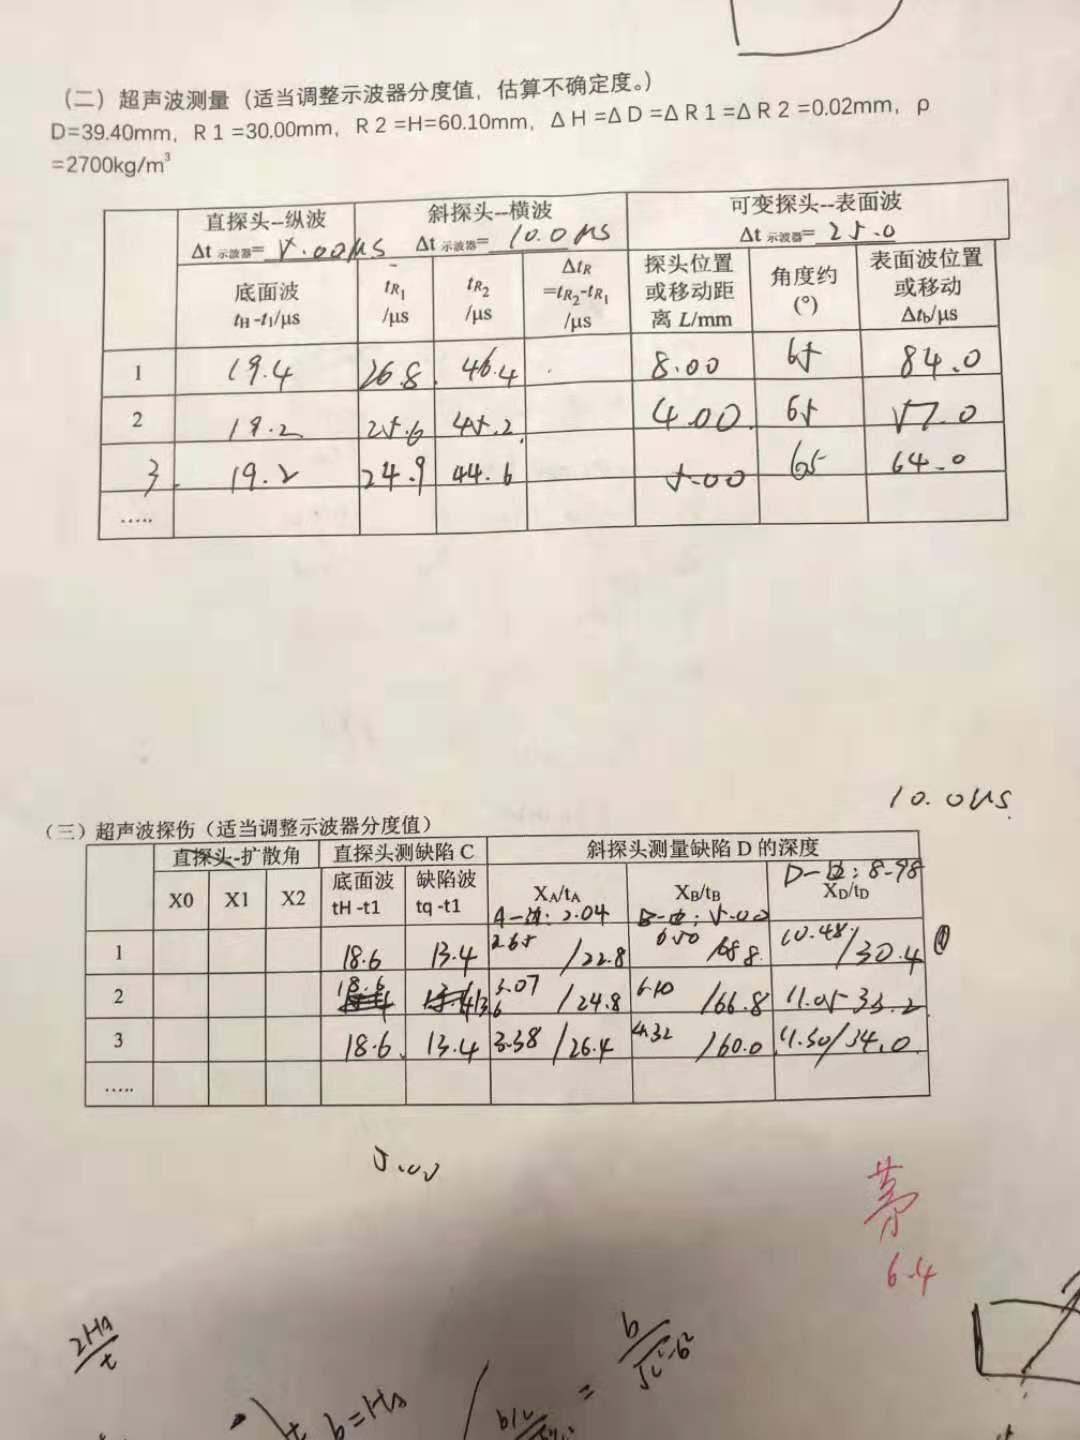 （二）超声波测量（适当调整示波器分度值，估算不确定度。）
D=39.40mm，R 1 =30.00mm，R 2 =H=60.10mm，Δ H =Δ D =Δ R 1 =Δ R 2 =0.02mm，ρ
=2700kg/m³
直探头--纵波 斜探头--横波 可变探头--表面波
Δt 示波器= 5.00μs Δt 示波器= 10.0μs Δt 示波器= 25.0
底面波 tH -t1/μs tR1 /μs tR2 /μs ΔtR =tR2-tR1 /μs 探头位置或移动距离 L/mm 角度约 (°) 表面波位置或移动 Δtb/μs
1 19.4 26.8 46.4 8.00 65 84.0
2 19.2 25.6 45.2 4.00 65 57.0
3 19.2 24.9 44.6 5.00 65 64.0
.....
10.0μs
（三）超声波探伤（适当调整示波器分度值）
直探头-扩散角 直探头测缺陷 C 斜探头测量缺陷 D 的深度
X0 X1 X2 底面波 tH -t1 缺陷波 tq -t1 XA/tA XB/tB D-边：8.98 XD/tD
A-边：2.04 B-边：5.00
1 18.6 13.4 2.65 /22.8 6.50 /68.8 10.48/30.4 ①
2 18.6 13.6 3.07 /24.8 6.10 /66.8 11.05 33.2
3 18.6 13.4 3.38 /26.4 4.32 /60.0 11.50/34.0
.....
5.00
6.4
2Hs/t
b
b=Hs
=